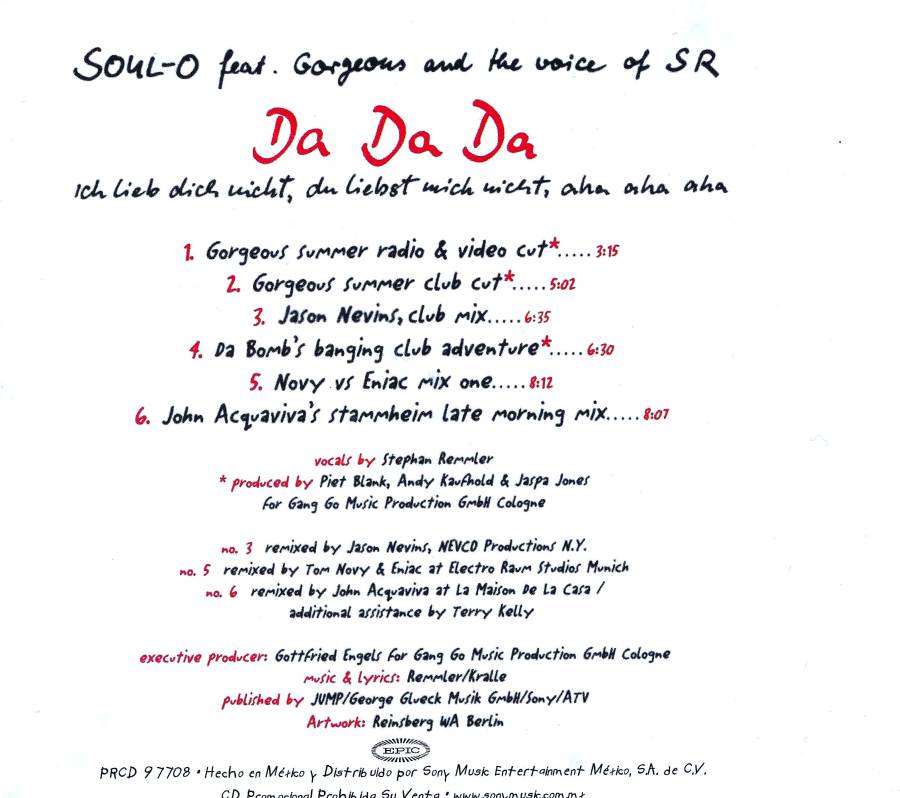 SOUL-O feat. Gorgeous and the voice of SR
Da Da Da
Ich lieb dich nicht, du liebst mich nicht, aha aha aha
1. Gorgeous summer radio & video cut*..... 3:15
2. Gorgeous summer club cut*..... 5:02
3. Jason Nevins, club mix..... 6:35
4. Da Bomb's banging club adventure*..... 6:30
5. Novy vs Eniac mix one..... 8:12
6. John Acquaviva's stammheim late morning mix..... 8:07
vocals by Stephan Remmler
* produced by Piet Blank, Andy Kaufhold & Jaspa Jones
for Gang Go Music Production GmbH Cologne
no. 3 remixed by Jason Nevins, NEVCO Productions N.Y.
no. 5 remixed by Tom Novy & Eniac at Electro Raum Studios Munich
no. 6 remixed by John Acquaviva at La Maison De La Casa /
additional assistance by Terry Kelly
executive producer: Gottfried Engels for Gang Go Music Production GmbH Cologne
music & lyrics: Remmler/Kralle
published by JUMP/George Glueck Musik GmbH/Sony/ATV
Artwork: Reinsberg WA Berlin
EPIC
PRCD 97708 • Hecho en México y Distribuido por Sony Music Entertainment México, S.A. de C.V.
CD Promocional Prohibida Su Venta • www.sonymusic.com.mx